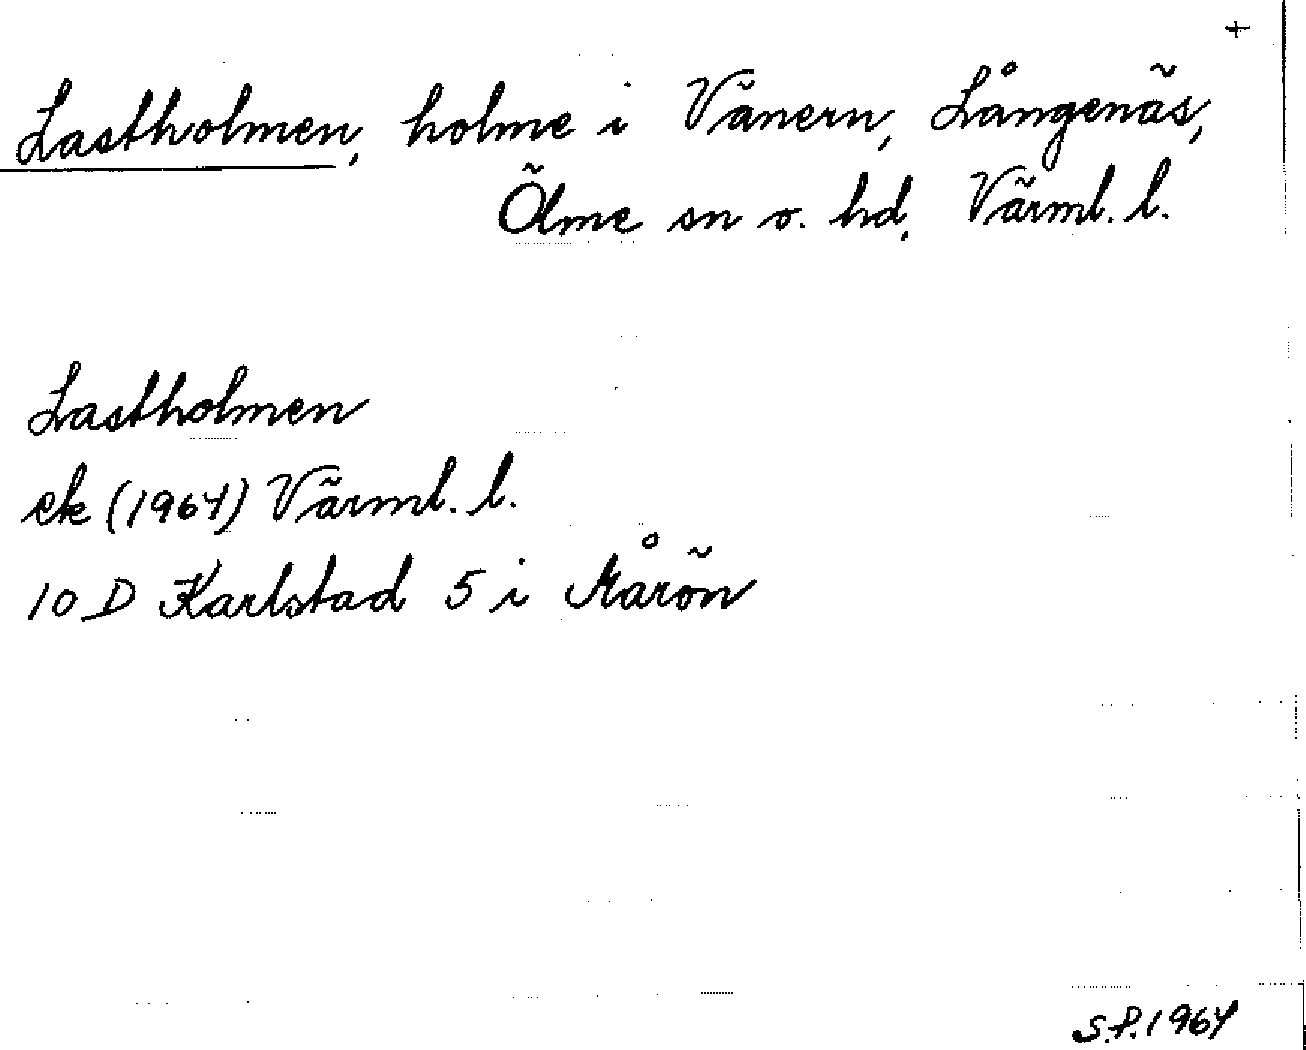 +
Lastholmen, holme i Vänern, Långenäs,
Ölme sn o. hd, Värml. l.
Lastholmen
ek (1964) Värml. l.
10 D Karlstad 5 i Mårön
S.P. 1964